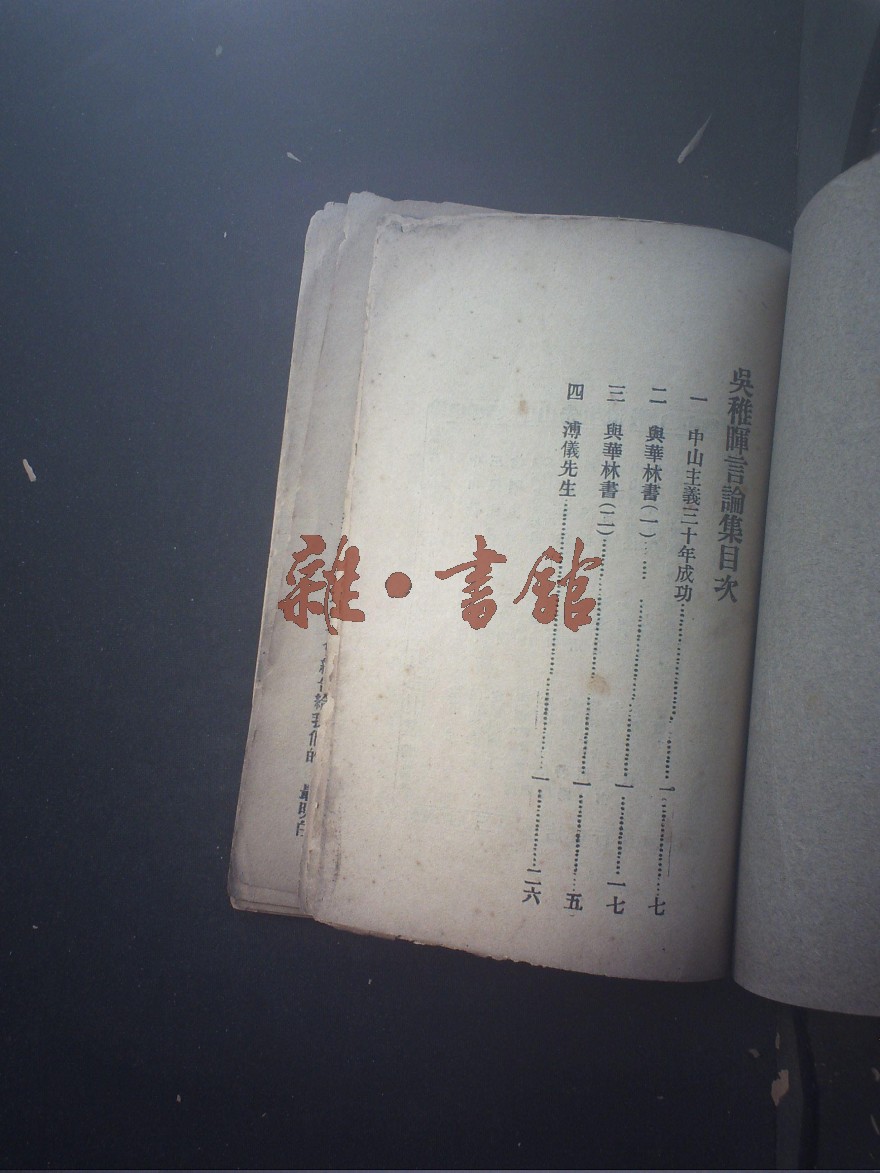 吳稚暉言論集目次
一 中山主義三十年成功……一……七
二 與華林書(一)……一……一七
三 與華林書(二)……一……五
四 溥儀先生……一……二六
雜·書館
給我們的